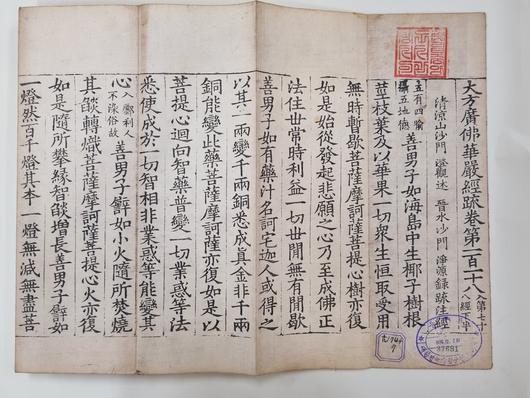 大方廣佛華嚴經疏卷第一百十八 入第七十八經下半
清涼山沙門 澄觀述 晉水沙門 淨源錄疏注經
五有四喻攝五地德 善男子如海島中生椰子樹根
莖枝葉及以華果一切衆生恒取受用
無時暫歇菩薩摩訶薩菩提心樹亦復
如是始從發起悲願之心乃至成佛正
法住世常時利益一切世閒無有閒歇
善男子如有藥汁名訶宅迦人或得之
以其一兩變千兩銅悉成眞金非千兩
銅能變此藥菩薩摩訶薩亦復如是以
菩提心迴向智藥普變一切業惑等法
悉使成於一切智相非業惑等能變其
心 入鄽利人不染俗故 善男子譬如小火隨所焚燒
其焰轉熾菩薩摩訶薩菩提心火亦復
如是隨所攀緣智焰增長善男子譬如
一燈然百千燈其本一燈無減無盡菩
37681